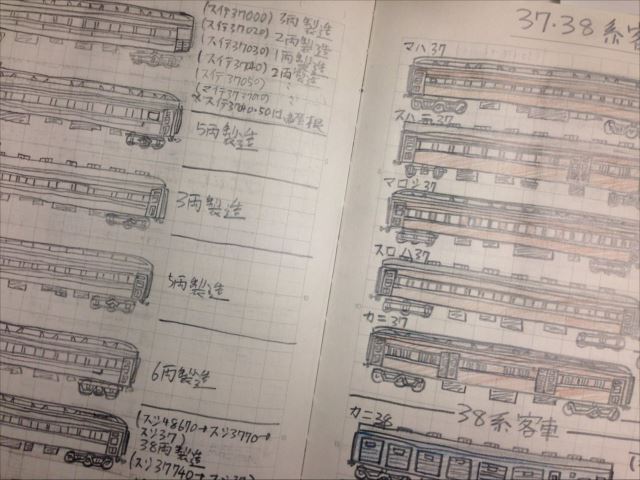 (スイテ37000) 3両製造
(スイテ37020) 2両製造
(スイテ37030) 1両製造
(スイテ37040) 2両製造
(スイテ37050)
5両製造
3両製造
5両製造
6両製造
(スシ48670→スシ3770→
スシ37)
38両製造
(スシ37740→スシ37)
37.38系客
マハ37
スハニ37
マロシ37
スロハ37
カニ37
38系客車
カニ38